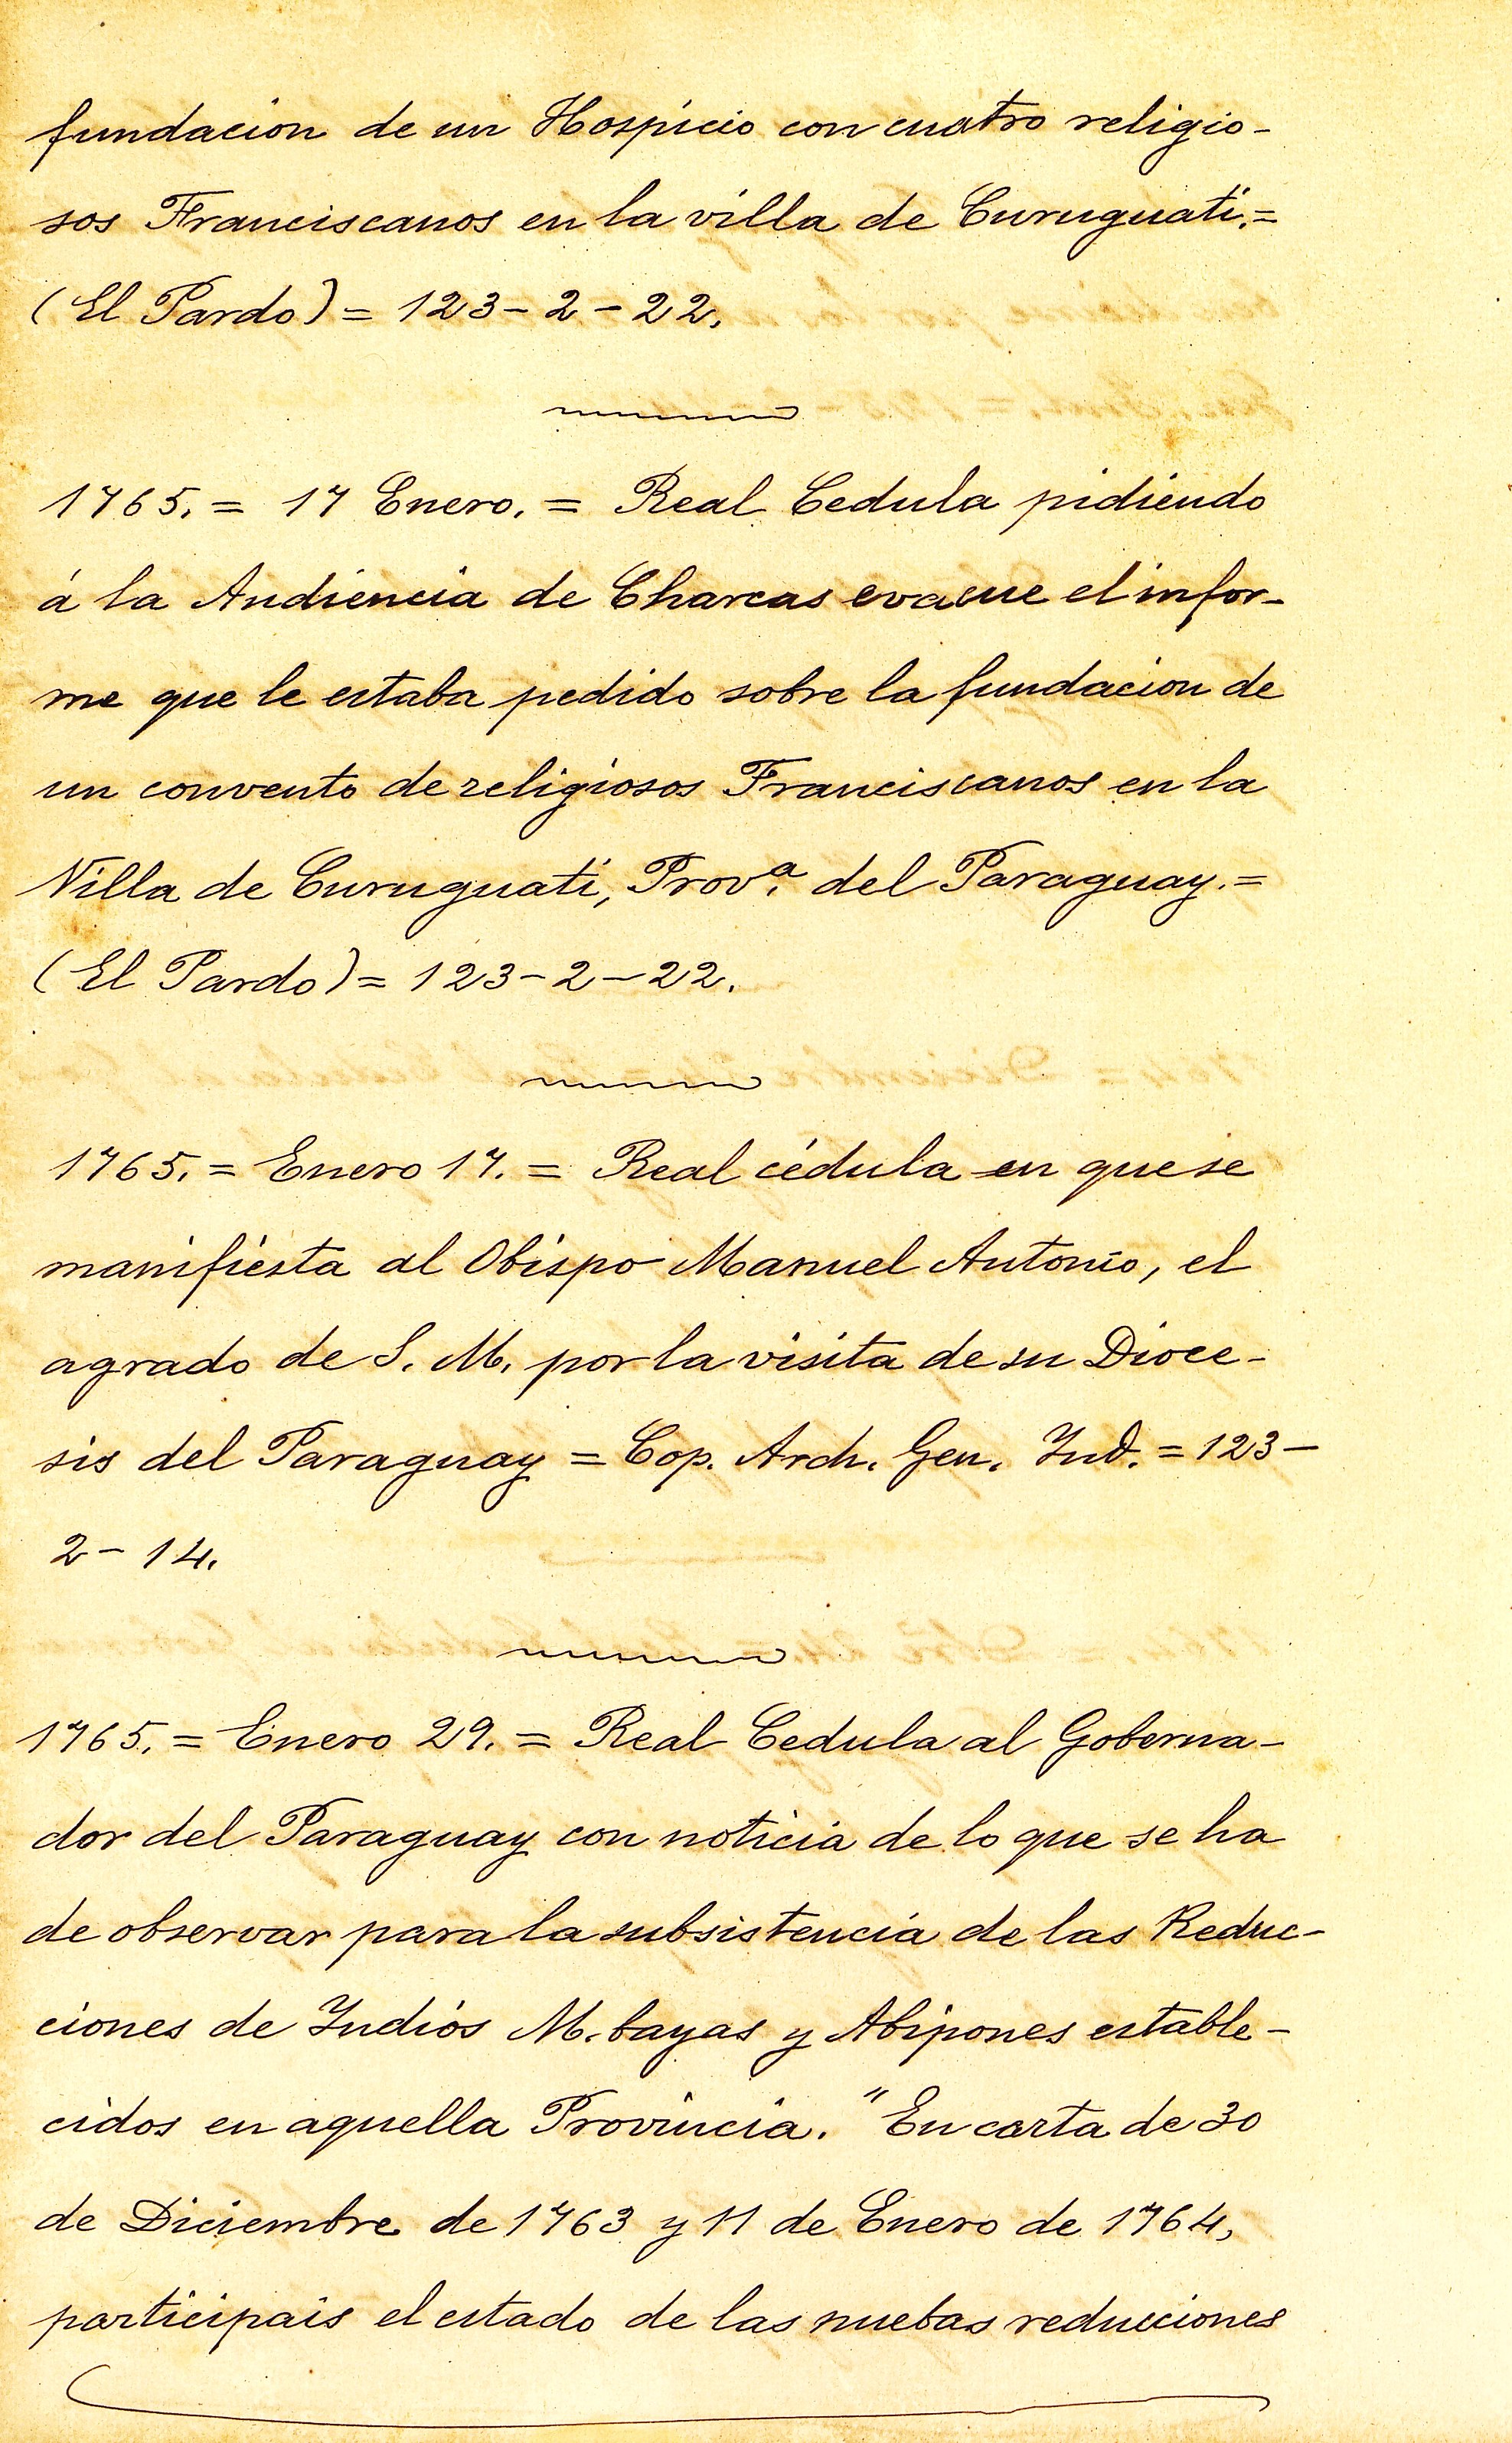 fundacion de un Hospicio con cuatro religio-
sos Franciscanos en la villa de Curuguati.=
(El Pardo) = 123-2-22.
1765. = 17 Enero. = Real Cedula pidiendo
á la Audiencia de Charcas evacue el infor-
me que le estaba pedido sobre la fundacion de
un convento de religiosos Franciscanos en la
Villa de Curuguati, Prov.ª del Paraguay.=
(El Pardo) = 123-2-22.
1765. = Enero 17. = Real cédula en que se
manifiesta al Obispo Manuel Antonio, el
agrado de S. M. por la visita de su Dioce-
sis del Paraguay = Cop. Arch. Gen. Ind. = 123-
2-14.
1765. = Enero 29. = Real Cedula al Goberna-
dor del Paraguay con noticia de lo que se ha
de observar para la subsistencia de las Reduc-
ciones de Indios M.bayas y Abipones estable-
cidos en aquella Provincia. "En carta de 30
de Diciembre de 1763 y 11 de Enero de 1764,
participais el estado de las nuebas reducciones